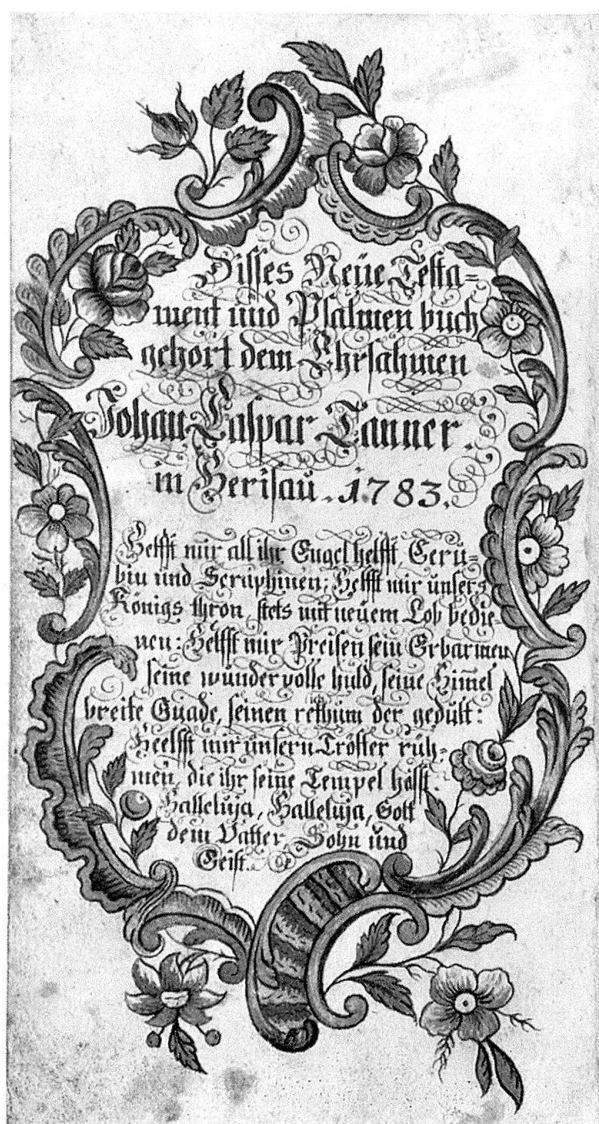 Disses Neüe Testa=
ment und Psalmen buch
gehört dem Ehrsahmen
Johan Caspar Tanner.
in Herisaü. 1783.
Helfft mir all ihr Engel helfft Ceru=
bin und Seraphinen; Helfft mir unsers
Königs thron stets mit neüem Lob bedie=
nen: Helfft mir Preisen sein Erbarmen
seine wunder volle huld, seine Him̄el
breite Gnade, seinen rethüm der gedült:
Heelfft mir unsern Tröster rüh=
men, die ihr seine Tempel
Halleluja, Halleluja, Gott
dem Vatter Sohn und
Geist.